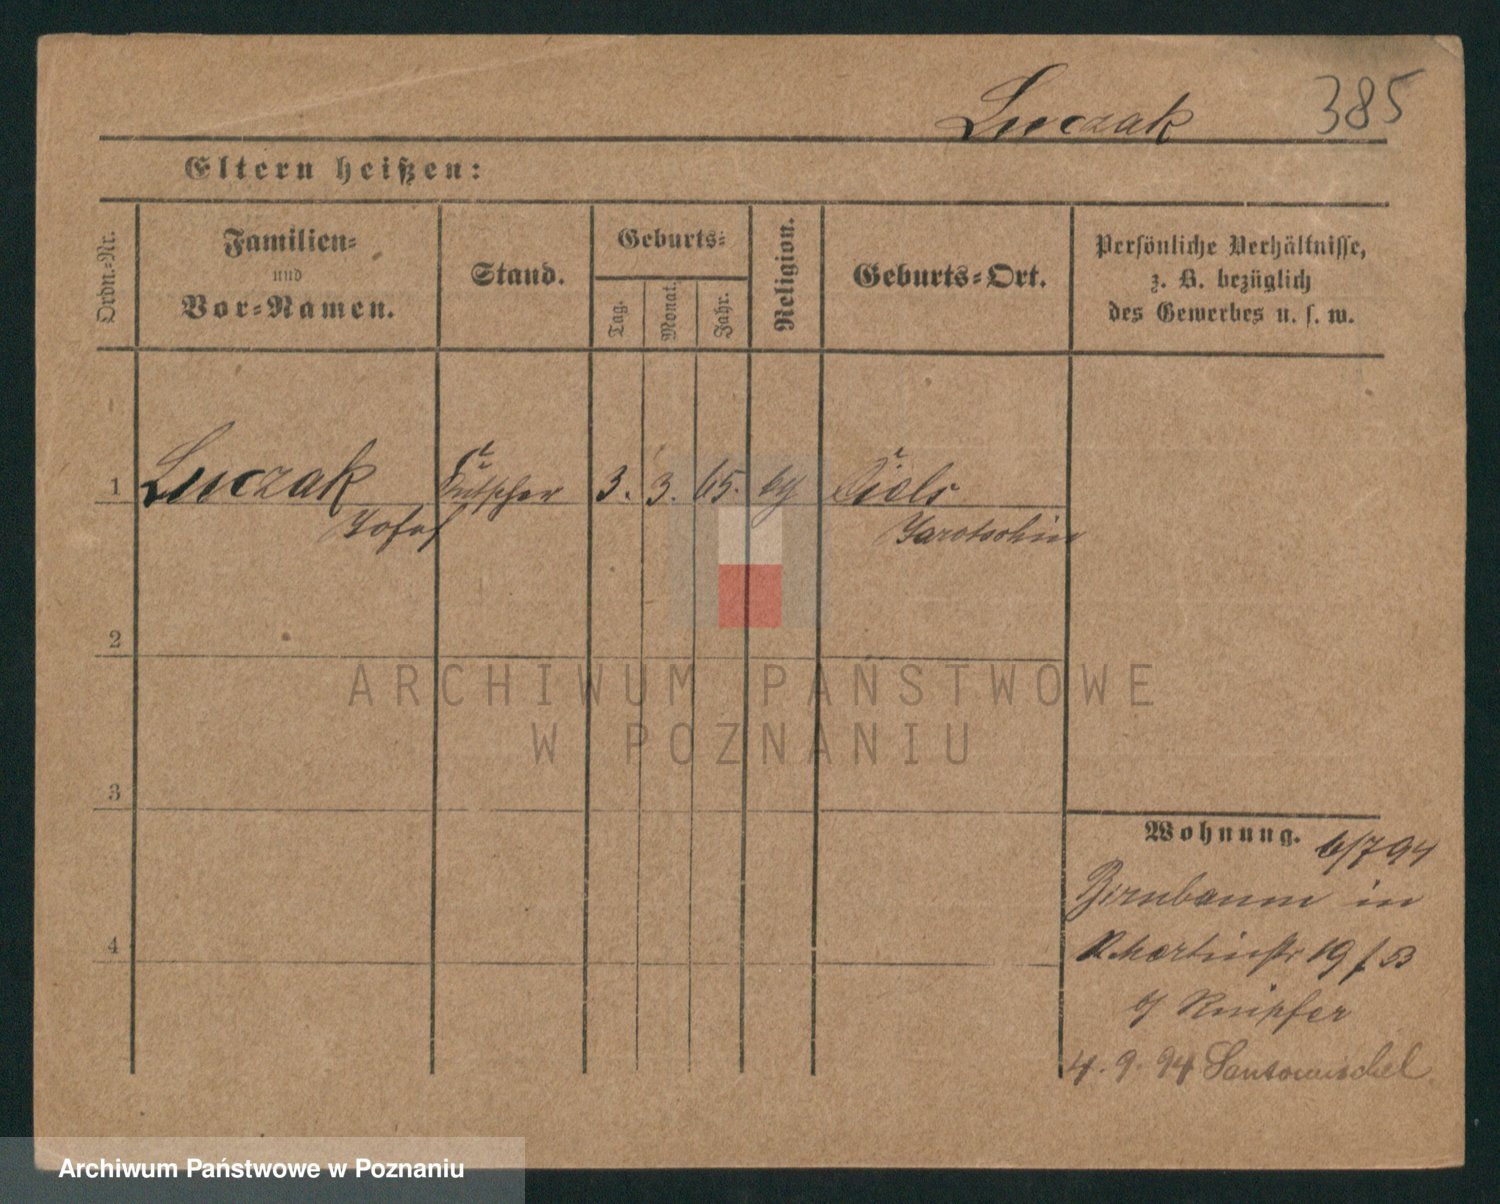 Luczak 385
Eltern heißen:
Ordn.-Nr.
Familien-
und
Vor-Namen.
Stand.
Geburts-
Tag.
Monat.
Jahr.
Religion.
Geburts-Ort.
Persönliche Verhältnisse,
z. B. bezüglich
des Gewerbes u. s. w.
1 Luczak Kutscher 3. 3. 65.
Josef Jarotschin
2
ARCHIWUM PAŃSTWOWE
W POZNANIU
3
Wohnung. 6/7 94
Birnbaum in
Martinstr 19
Knipfer
4
4. 9. 94 Santomischel
Archiwum Państwowe w Poznaniu